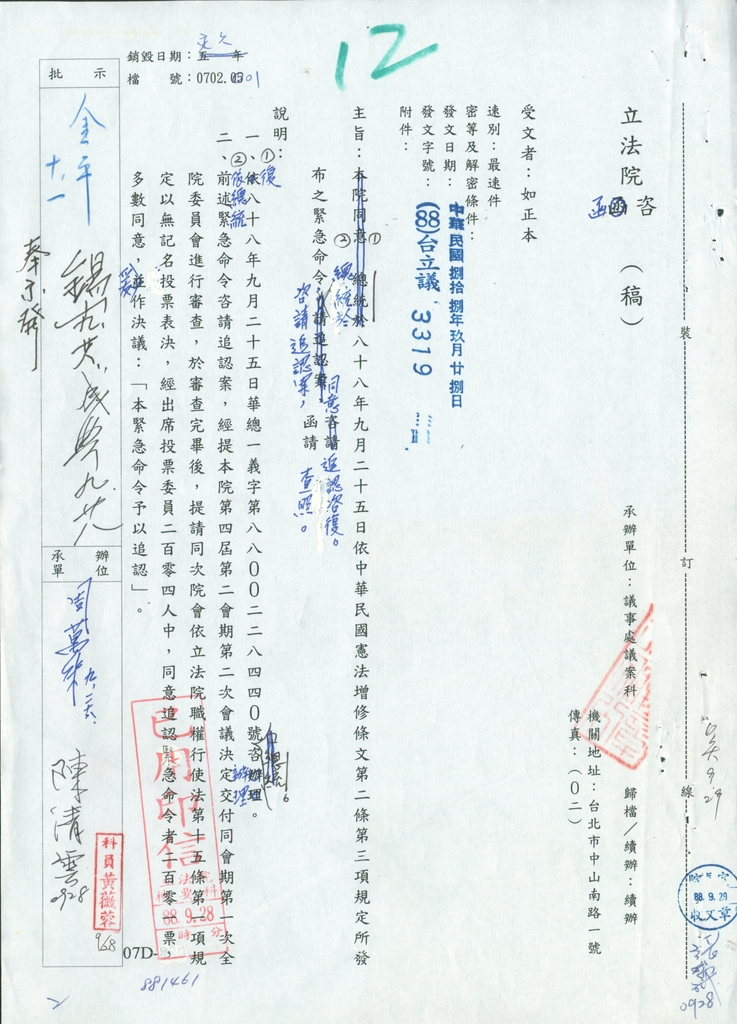 12
銷毀日期：五年
永久
檔　　號：0702.05
01
立法院咨　（稿）
函
承辦單位：議事處議案科　歸檔／續辦：續辦
機關地址：台北市中山南路一號
傳真：（０二）
受文者：如正本
速別：最速件
密等及解密條件：
發文日期：中華民國捌拾捌年玖月廿捌日
發文字號：(88)台立議　3319
附件：
主旨：本院同意　總統於八十八年九月二十五日依中華民國憲法增修條文第二條第三項規定所發
布之緊急命令咨請追認案，函請
總統於
咨請追認案，
同意追認咨復。
查照。
說明：
一、依八十八年九月二十五日華總一義字第八八００二二八四四０號咨辦理。
復
依總統
辦理
二、前述緊急命令咨請追認案，經提本院第四屆第二會期第二次會議決定交付同會期第一次全
院委員會進行審查，於審查完畢後，提請同次院會依立法院職權行使法第十五條第一項規
定以無記名投票表決，經出席投票委員二百零四人中，同意追認緊急命令者二百零一票，
多數同意，並作決議：「本緊急命令予以追認」。
爰
批示
金平
十、一
奉示發
承辦單位
周萬來
陳清雲
0928
科員黃薇蓉
9/28
已用印信
88.9.28
時　分
07D-
881461
裝
訂
線
88.9.29
收文章
0928